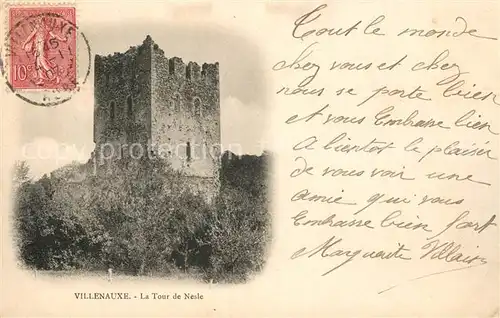 VILLENAUXE
10
Tout le monde
chez vous et chez
nous se porte bien
et vous embrasse bien
A bientot le plaisir
de vous voir une
amie qui vous
embrasse bien fort
Marguerite
VILLENAUXE. - La Tour de Nesle
profots